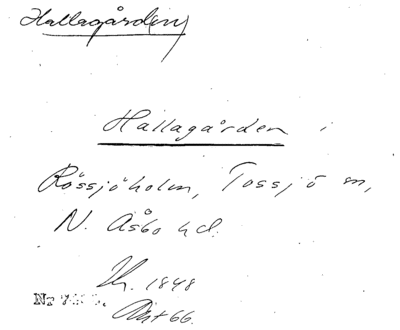 Hallagården
Hallagården
Rössjöholm, Tossjö sn,
N. Åsbo hd.
1848
Nr
66.